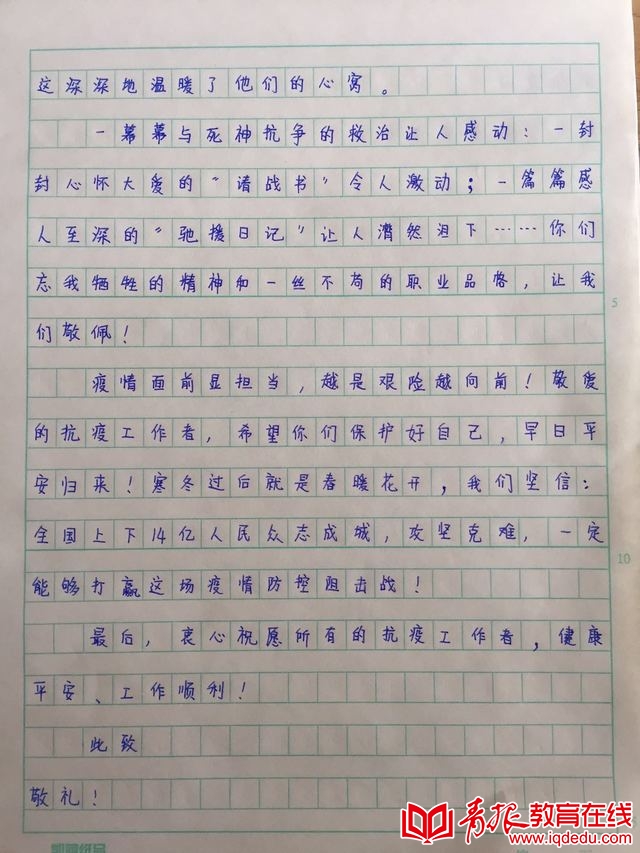 这深深地温暖了他们的心窝。
一幕幕与死神抗争的救治让人感动：一封
封心怀大爱的“请战书”令人激动；一篇篇感
人至深的“驰援日记”让人潸然泪下……你们
忘我牺牲的精神和一丝不苟的职业品格，让我
们敬佩！
疫情面前显担当，越是艰险越向前！敬爱
的抗疫工作者，希望你们保护好自己，早日平
安归来！寒冬过后就是春暖花开，我们坚信：
全国上下14亿人民众志成城，攻坚克难，一定
能够打赢这场疫情防控阻击战！
最后，衷心祝愿所有的抗疫工作者，健康
平安、工作顺利！
此致
敬礼！
5
10
青报教育在线
www.iqdedu.com